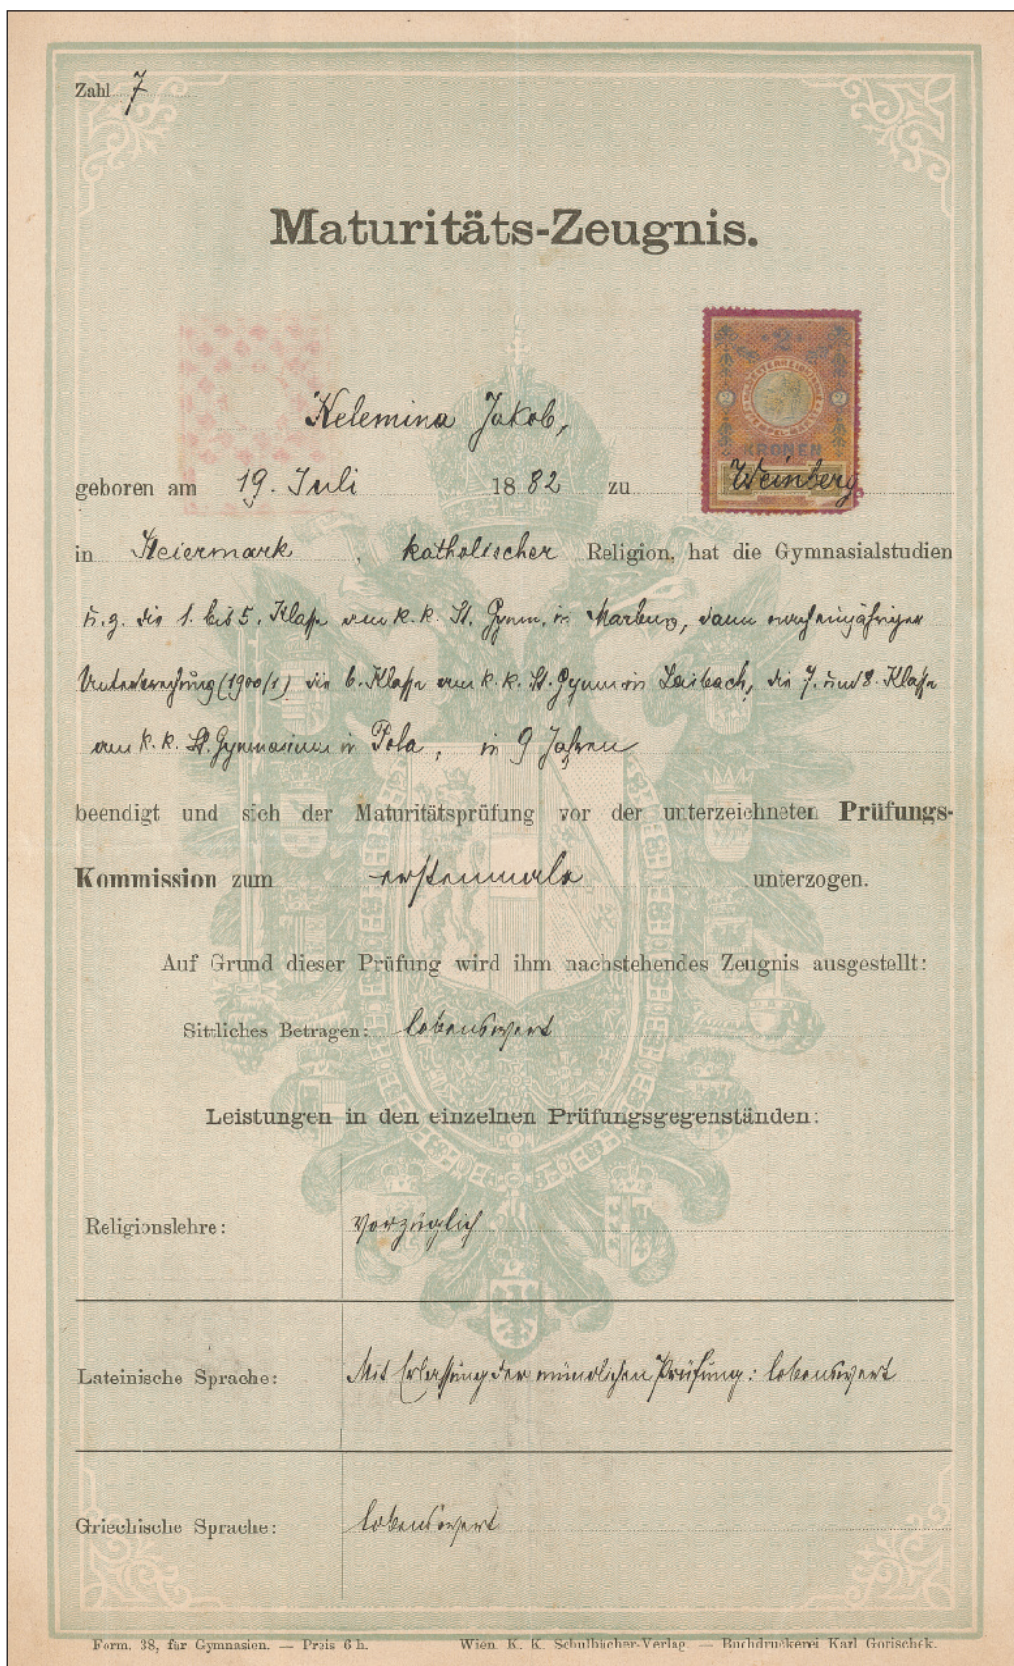 Zahl 7
Maturitäts-Zeugnis.
2
2 2
KRONEN
Kelemina Jakob,
geboren am 19. Juli 1882 zu Weinberg
in Steiermark, katholischer Religion, hat die Gymnasialstudien
u. z. die 1. bis 5. Klasse am k. k. St. Gymn. in Marburg, dann nach einjähriger
Unterbrechung (1900/1) die 6. Klasse am k. k. St. Gymn in Laibach, die 7. und 8. Klasse
am k. k. St. Gymnasium in Pola, in 9 Jahren
beendigt und sich der Maturitätsprüfung vor der unterzeichneten Prüfungs-
Kommission zum erstenmale unterzogen.
Auf Grund dieser Prüfung wird ihm nachstehendes Zeugnis ausgestellt:
Sittliches Betragen: lobenswert
Leistungen in den einzelnen Prüfungsgegenständen:
Religionslehre: vorzüglich
Lateinische Sprache: Mit Erlassung der mündlichen Prüfung: lobenswert
Griechische Sprache: lobenswert
Form. 38, für Gymnasien. — Preis 6 h. Wien. K. K. Schulbücher-Verlag. — Buchdruckerei Karl Gorischek.